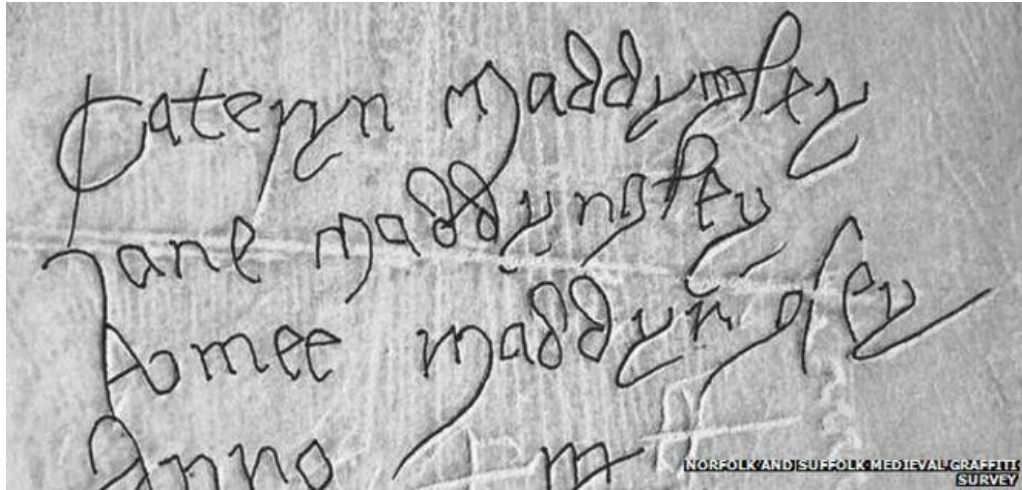 Cateryn maddyngley
Jane maddyngley
Amee maddyngley
Anno
NORFOLK AND SUFFOLK MEDIEVAL GRAFFITI
SURVEY